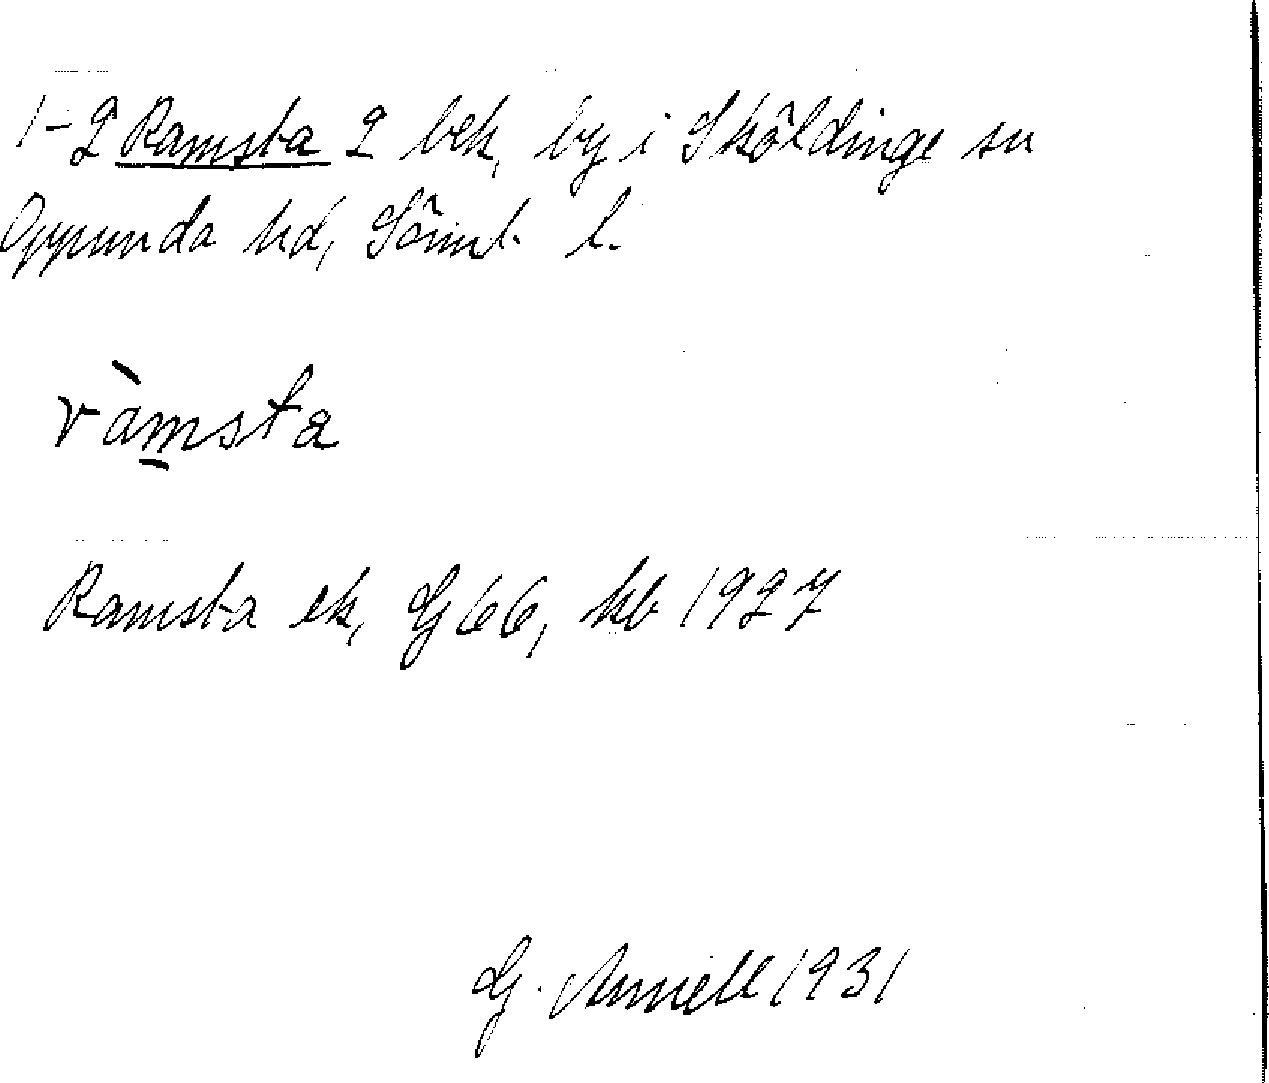 1-2 Ramsta 2 bek, by i Sköldinge sn
Oppunda hd, Sörml. l.
ràmsta
Ramsta ek, G 66, kb 1927
G. Arnell 1931